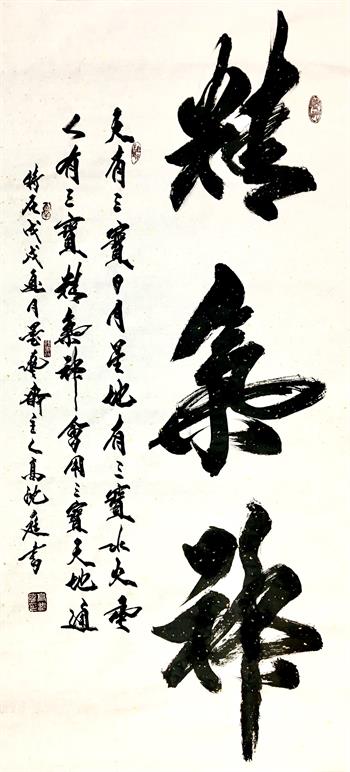 精氣神
天有三寶日月星地有三寶水火
人有三寶精氣神會用三寶天地通
時在戊戌月墨齋主人高庭書